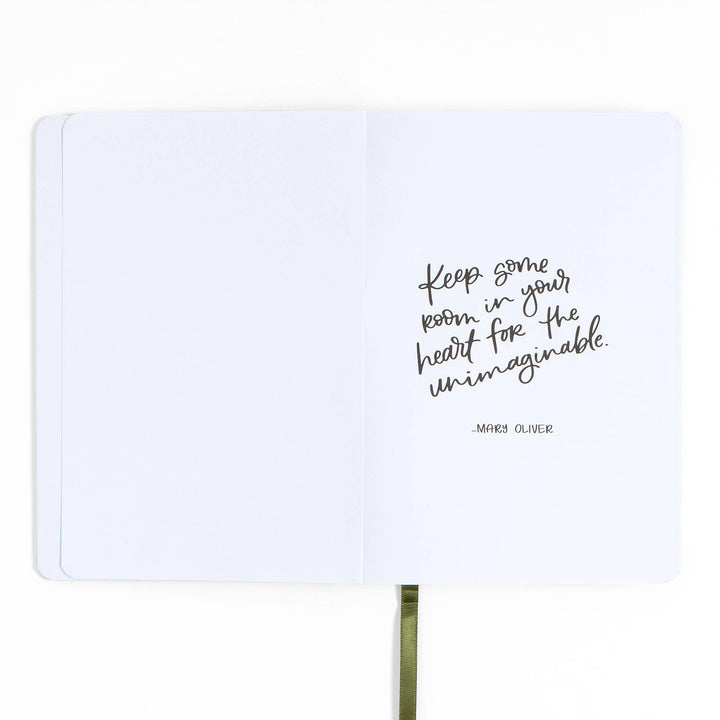 Keep some
room in your
heart for the
unimaginable.
-MARY OLIVER